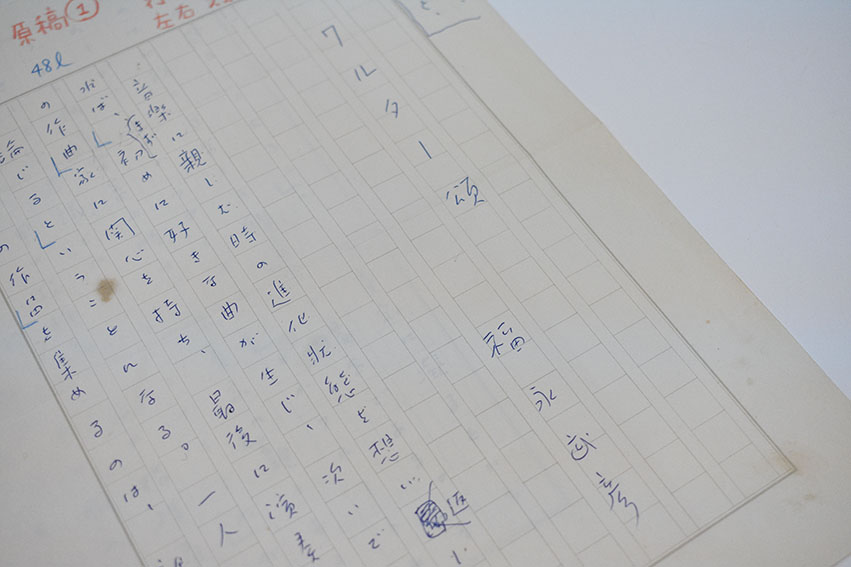 原稿①
左右
48l
ワルター頌 福永武彦
音楽に親しむ時の進化状態を想い返し
れば、まず初めに好きな曲が生じ、次いで
の作曲家に関心を持ち、最後に演奏
論じるということになる。一人
の作品を集めるのは、